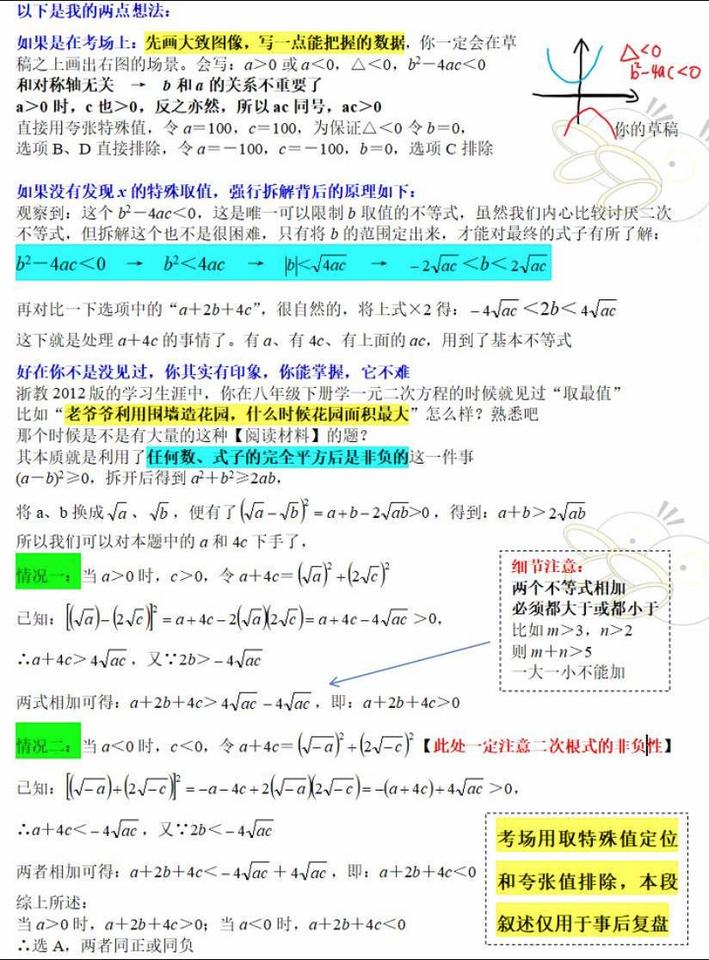 以下是我的两点想法：
如果是在考场上：先画大致图像，写一点能把握的数据，你一定会在草
稿之上画出右图的场景。会写：a＞0 或 a＜0，△＜0，b²－4ac＜0
和对称轴无关 → b 和 a 的关系不重要了
a＞0 时，c 也＞0，反之亦然，所以 ac 同号，ac＞0
直接用夸张特殊值，令 a＝100，c＝100，为保证△＜0 令 b＝0，
选项 B、D 直接排除，令 a＝－100，c＝－100，b＝0，选项 C 排除
△<0
b²-4ac<0
你的草稿
如果没有发现 x 的特殊取值，强行拆解背后的原理如下：
观察到：这个 b²－4ac＜0，这是唯一可以限制 b 取值的不等式，虽然我们内心比较讨厌二次
不等式，但拆解这个也不是很困难，只有将 b 的范围定出来，才能对最终的式子有所了解：
b²－4ac＜0 → b²＜4ac → |b|＜√4ac → －2√ac＜b＜2√ac
再对比一下选项中的“a＋2b＋4c”，很自然的，将上式×2 得：－4√ac＜2b＜4√ac
这下就是处理 a＋4c 的事情了。有 a、有 4c、有上面的 ac，用到了基本不等式
好在你不是没见过，你其实有印象，你能掌握，它不难
浙教 2012 版的学习生涯中，你在八年级下册学一元二次方程的时候就见过“取最值”
比如“老爷爷利用围墙造花园，什么时候花园面积最大”怎么样？熟悉吧
那个时候是不是有大量的这种【阅读材料】的题？
其本质就是利用了任何数、式子的完全平方后是非负的这一件事
(a－b)²≥0，拆开后得到 a²＋b²≥2ab，
将 a、b 换成√a、√b，便有了(√a－√b)²＝a＋b－2√ab>0，得到：a＋b＞2√ab
所以我们可以对本题中的 a 和 4c 下手了，
情况一：当 a＞0 时，c＞0，令 a＋4c＝(√a)²＋(2√c)²
已知：[(√a)－(2√c)]²＝a＋4c－2(√a)(2√c)＝a＋4c－4√ac＞0，
∴a＋4c＞4√ac，又∵2b＞－4√ac
两式相加可得：a＋2b＋4c＞4√ac－4√ac，即：a＋2b＋4c＞0
细节注意：
两个不等式相加
必须都大于或都小于
比如 m＞3，n＞2
则 m＋n＞5
一大一小不能加
情况二：当 a＜0 时，c＜0，令 a＋4c＝(√－a)²＋(2√－c)²【此处一定注意二次根式的非负性】
已知：[(√－a)＋(2√－c)]²＝－a－4c＋2(√－a)(2√－c)＝－(a＋4c)＋4√ac＞0，
∴a＋4c＜－4√ac，又∵2b＜－4√ac
两者相加可得：a＋2b＋4c＜－4√ac＋4√ac，即：a＋2b＋4c＜0
综上所述：
当 a＞0 时，a＋2b＋4c＞0；当 a＜0 时，a＋2b＋4c＜0
∴选 A，两者同正或同负
考场用取特殊值定位
和夸张值排除，本段
叙述仅用于事后复盘